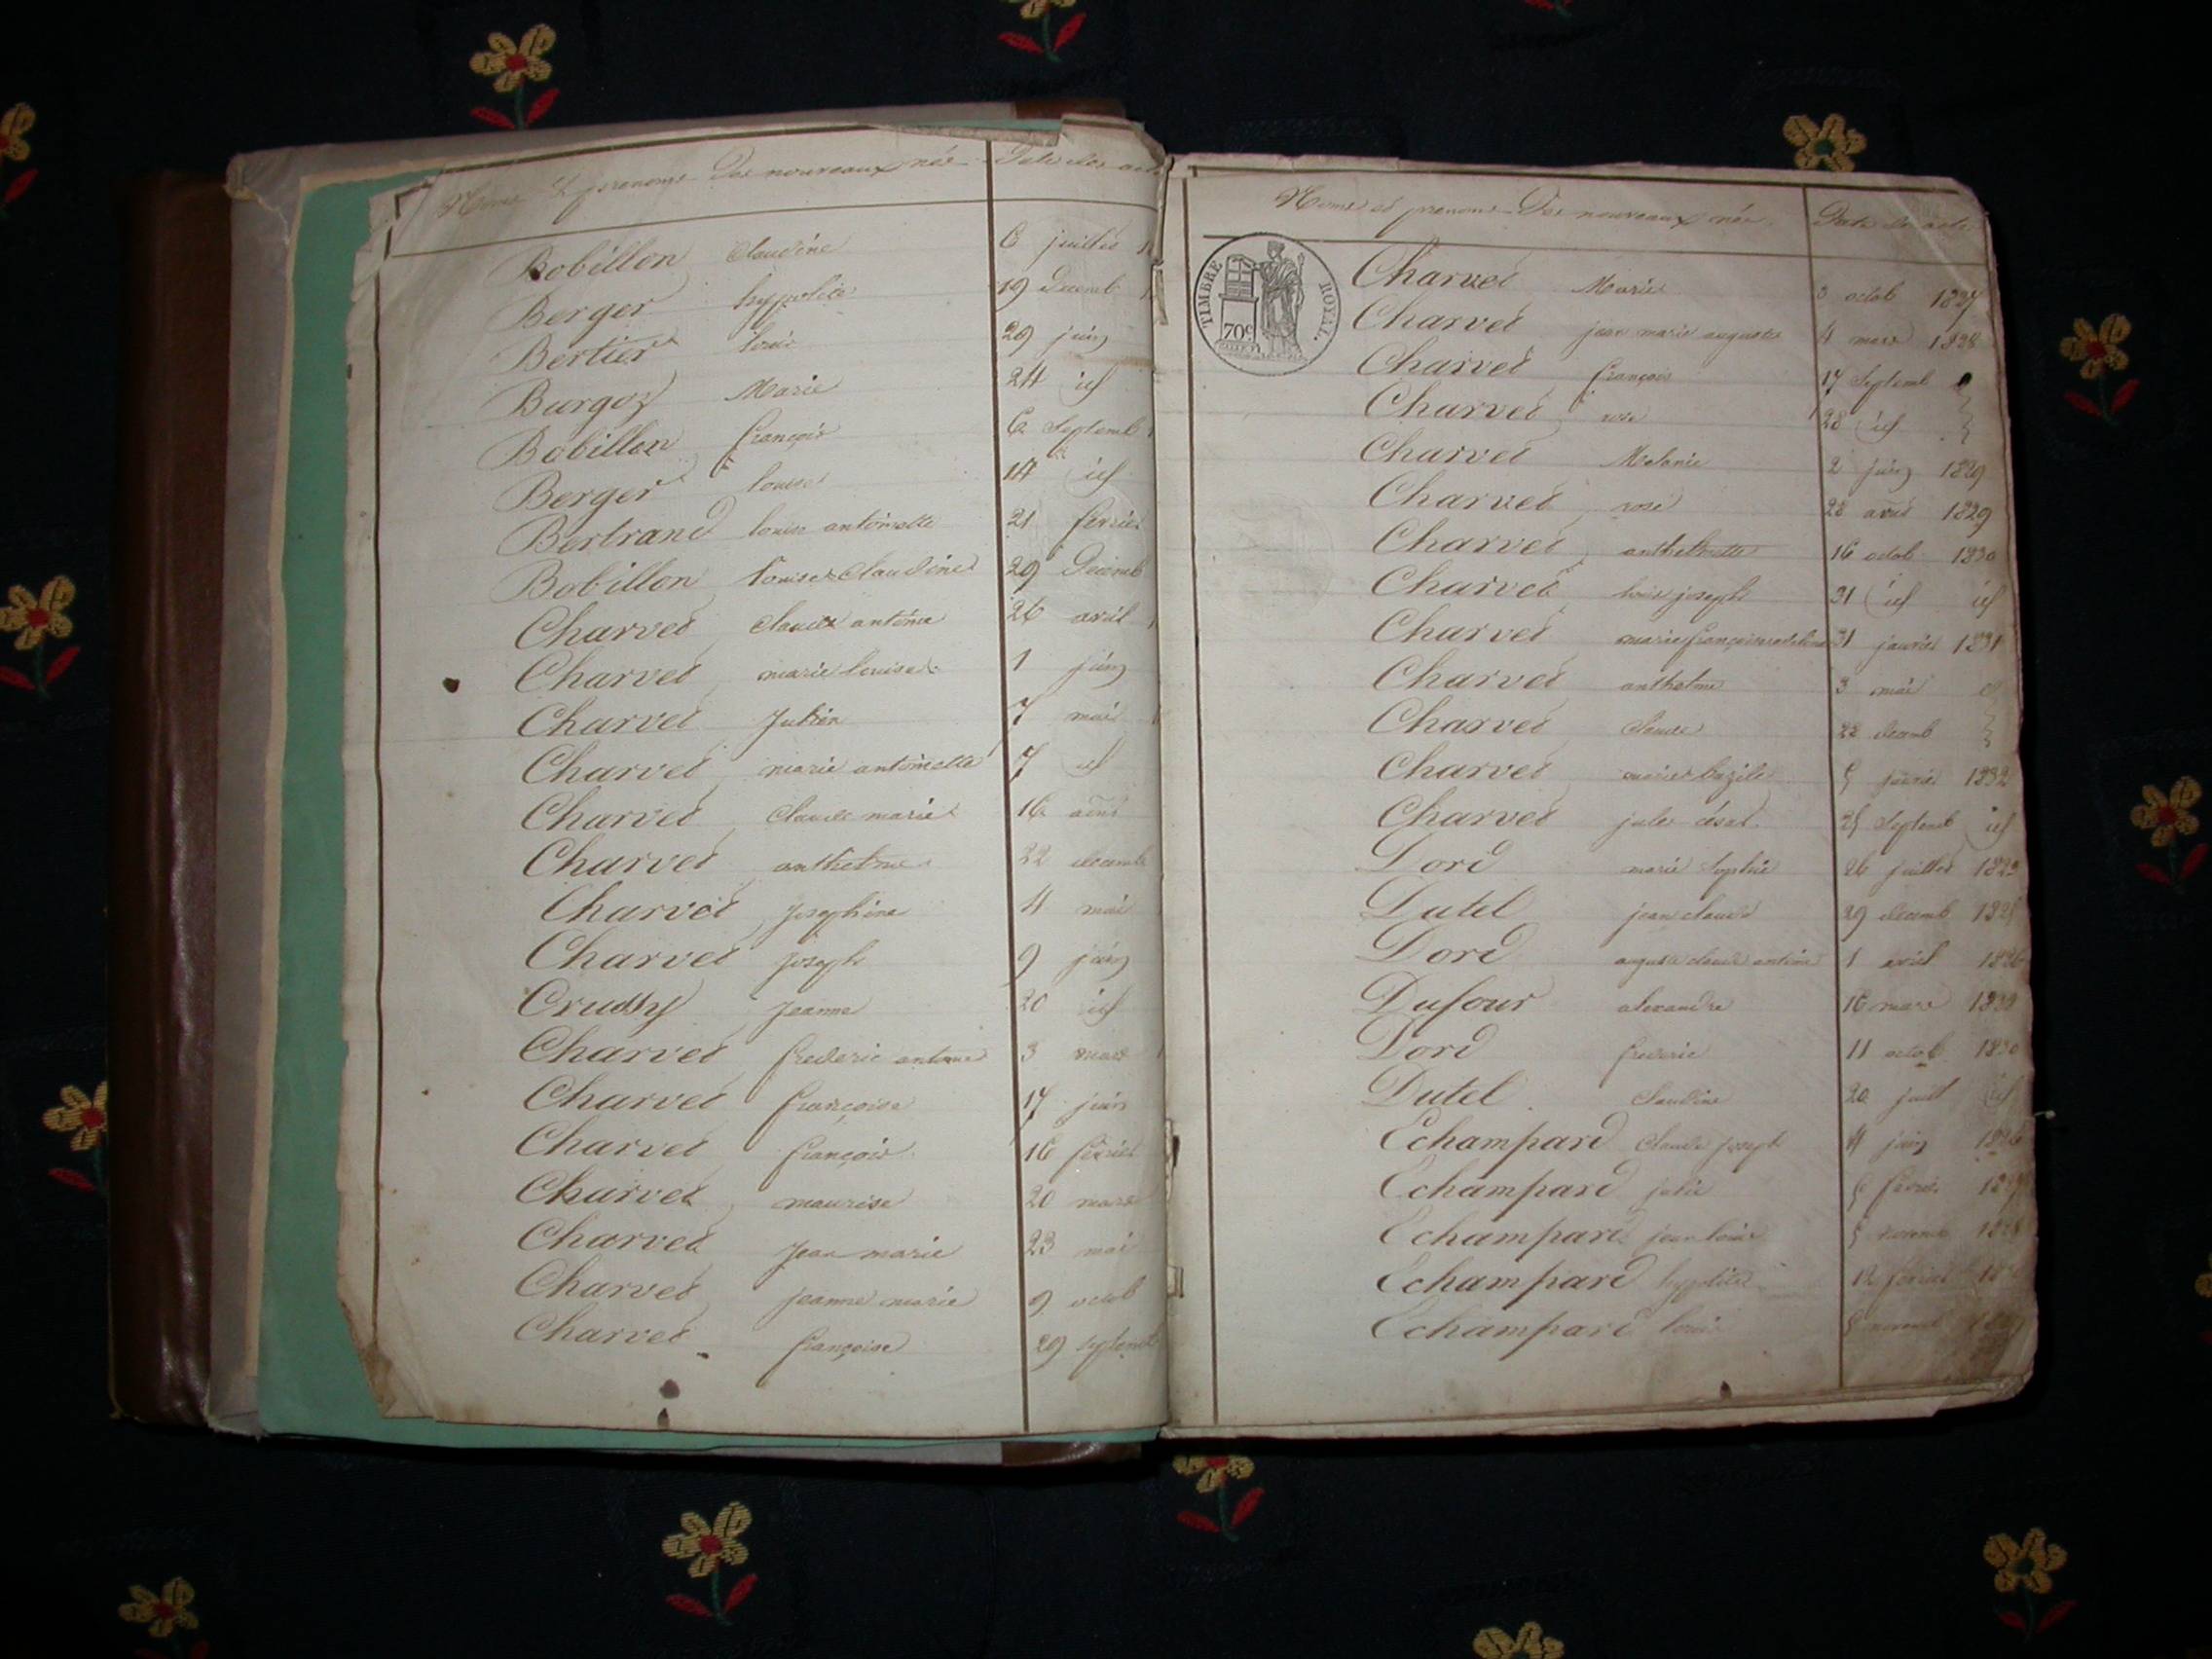 Noms & prenoms Des nouveaux née Date des act
Bobillon Claudine 6 juillet
Berger hypolite 19 Decemb
Bertier louis 29 juin
Burgoz Marie 24 id
Bobillon françois 6 Septemb
Berger louise 14 id
Bertrand louise antoinette 21 fevrier
Bobillon Louise Claudine 29 Decemb
Charvet claude antoine 26 avril
Charvet marie louise 1 juin
Charvet Julien 7 mai
Charvet marie antoinette 7 id
Charvet Claude marie 16
Charvet anthelme 22 decemb
Charvet Josephine 4 mai
Charvet Joseph 9 juin
Jeanne 20 id
Charvet frederic antoine 3 mars
Charvet françoise 17 juin
Charvet françois 16 fevrier
Charvet maurise 20 mars
Charvet Jean marie 23 mai
Charvet jeanne marie 9 octob
Charvet françoise 29 septemb
Noms et prenoms Des nouveaux née Date des acte
TIMBRE ROYAL 70c
Charvet Marie 3 octob 1827
Charvet jean marie auguste 4 mars 1828
Charvet françois 17 Septemb
Charvet rose 28 id
Charvet Melanie 2 juin 1829
Charvet rose 28 avril 1829
Charvet anthelmette 16 octob 1830
Charvet louis joseph 31 id id
Charvet marie françoise 31 janvier 1831
Charvet anthelme 3 mai id
Charvet Claude 22 decemb
Charvet marie bazile 5 janvier 1832
Charvet jules césar 25 Septemb id
Dord marie Sophie 26 juillet 1823
Dutel jean claude 29 decemb 1825
Dord auguste claude antoine 1 avril 1826
Dufour alexandre 16 mars 1830
Dord frederic 11 octob 1830
Dutel Claudine 20 juil id
Echampard Claude Joseph 4 juin 1826
Echampard julie
Echampard jean louis 5 novemb 1828
Echampard hypolite 12 fevrier
Echampard louis 5 novemb